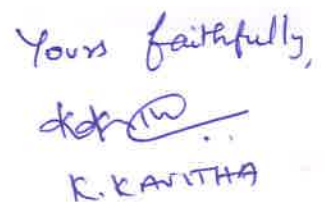 Yours faithfully,
K. KAVITHA